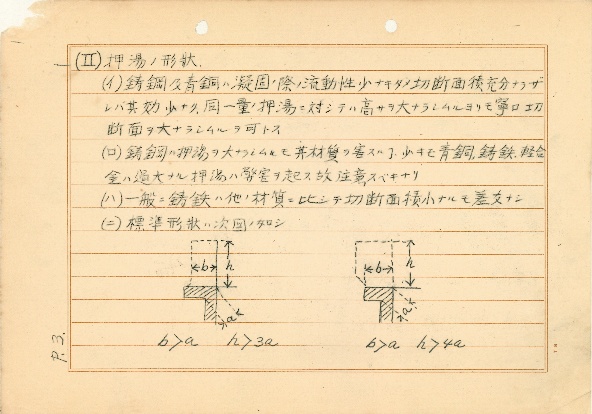 (II) 押湯ノ形状.
(イ) 鋳鋼及青銅ハ凝固ノ際ノ流動性少ナキタメ切断面積充分ナラザ
レバ其効少ナク、同一量ノ押湯ニ対シテハ高サヲ大ナラシムルヨリモ寧ロ切
断面ヲ大ナラシムルヲ可トス
(ロ) 鋳鋼ハ押湯ヲ大ナラシムルモ其材質ヲ害スル事少キモ青銅、鋳鉄、軽合
金ハ過大ナル押湯ハ弊害ヲ起ス故注意スベキナリ
(ハ) 一般ニ鋳鉄ハ他ノ材質ニ比シテ切断面積小ナルモ差支ナシ
(ニ) 標準形状ハ次図ノ如シ
b h
a
b h
a
b>a h>3a
b>a h>4a
P.3.